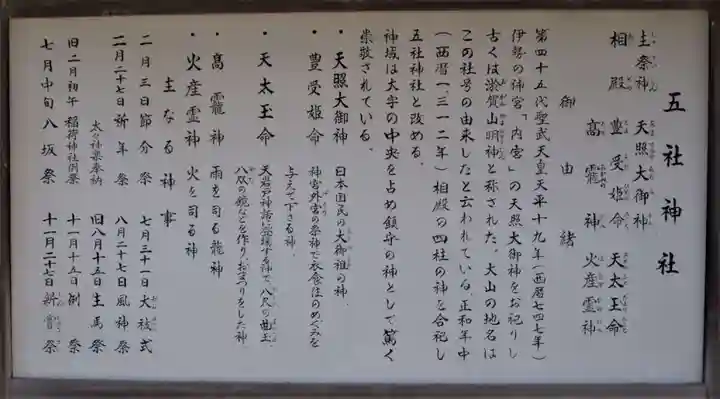 五社神社
主祭神 天照大御神
相殿 豊受姫命 天太玉命
高龗神 火産霊神
御由緒
第四十五代聖武天皇天平十九年(西暦七四七年)
伊勢の神宮「内宮」の天照大御神をお祀りし
古くは滋賀山明神と称された。大山の地名は
この社号の由来したと云われている。正和年中
(西暦一三一二年)相殿の四柱の神を合祀し
五社神社と改める。
神域は大字の中央を占め鎮守の神として篤く
崇敬されている。
・天照大御神 日本国民の大御祖の神。
・豊受姫命 神宮外宮の祭神で衣食住のめぐみを
与えて下さる神。
・天太玉命 天岩戸神話に登場する神で、八尺の曲玉、
八咫の鏡などを作り、おまつりをした神。
・高龗神 雨を司る龍神
・火産霊神 火を司る神
主なる神事
二月三日節分祭 七月三十一日大祓式
二月二十七日祈年祭 八月二十七日風神祭
太々神楽奉納 旧八月十五日生馬祭
旧二月初午 稲荷神社例祭 十月十五日例祭
七月中旬八坂祭 十一月二十七日新嘗祭